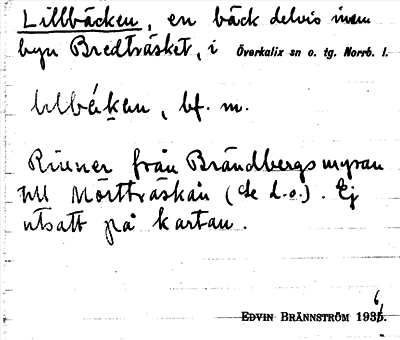 Lillbäcken, en bäck delvis inom
byn Bredträsket, i Överkalix sn o. tg. Norrb. l.
bf. m.
Rinner från Brändbergsmyran
till Mörtträskån (se d.o.). Ej
utsatt på kartan.
EDVIN BRÄNNSTRÖM 1936.